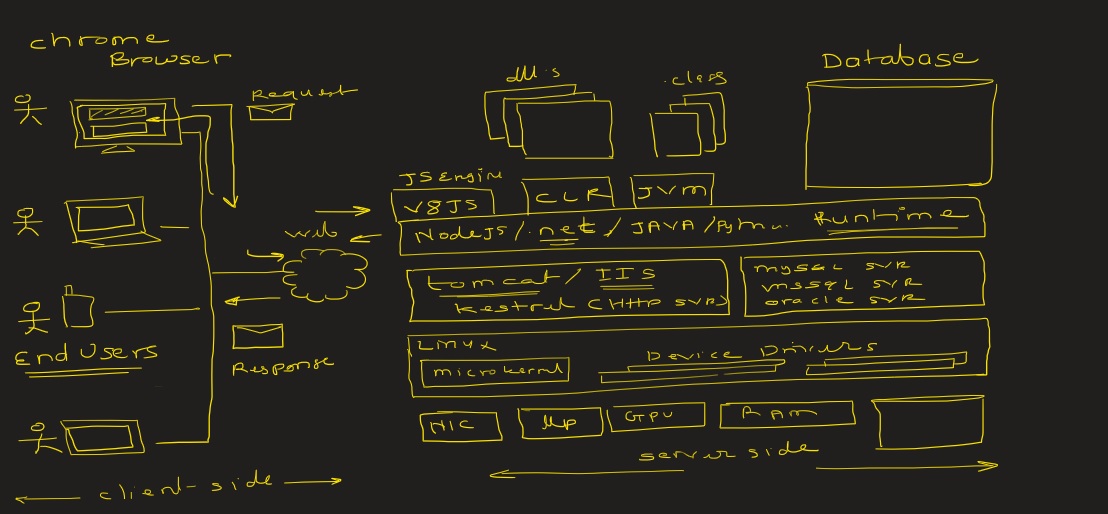 chrome
Browser
Request
web
Response
End Users
client-side
dll's
.class
Database
JS Engine
V8JS
CLR
JVM
NodeJS/.net/JAVA/Python Runtime
tomcat/IIS
Kestrel (HTTP SVR)
mysql SVR
mssql SVR
oracle SVR
Linux
microkernel
Device Drivers
NIC
μp
GPU
RAM
server side